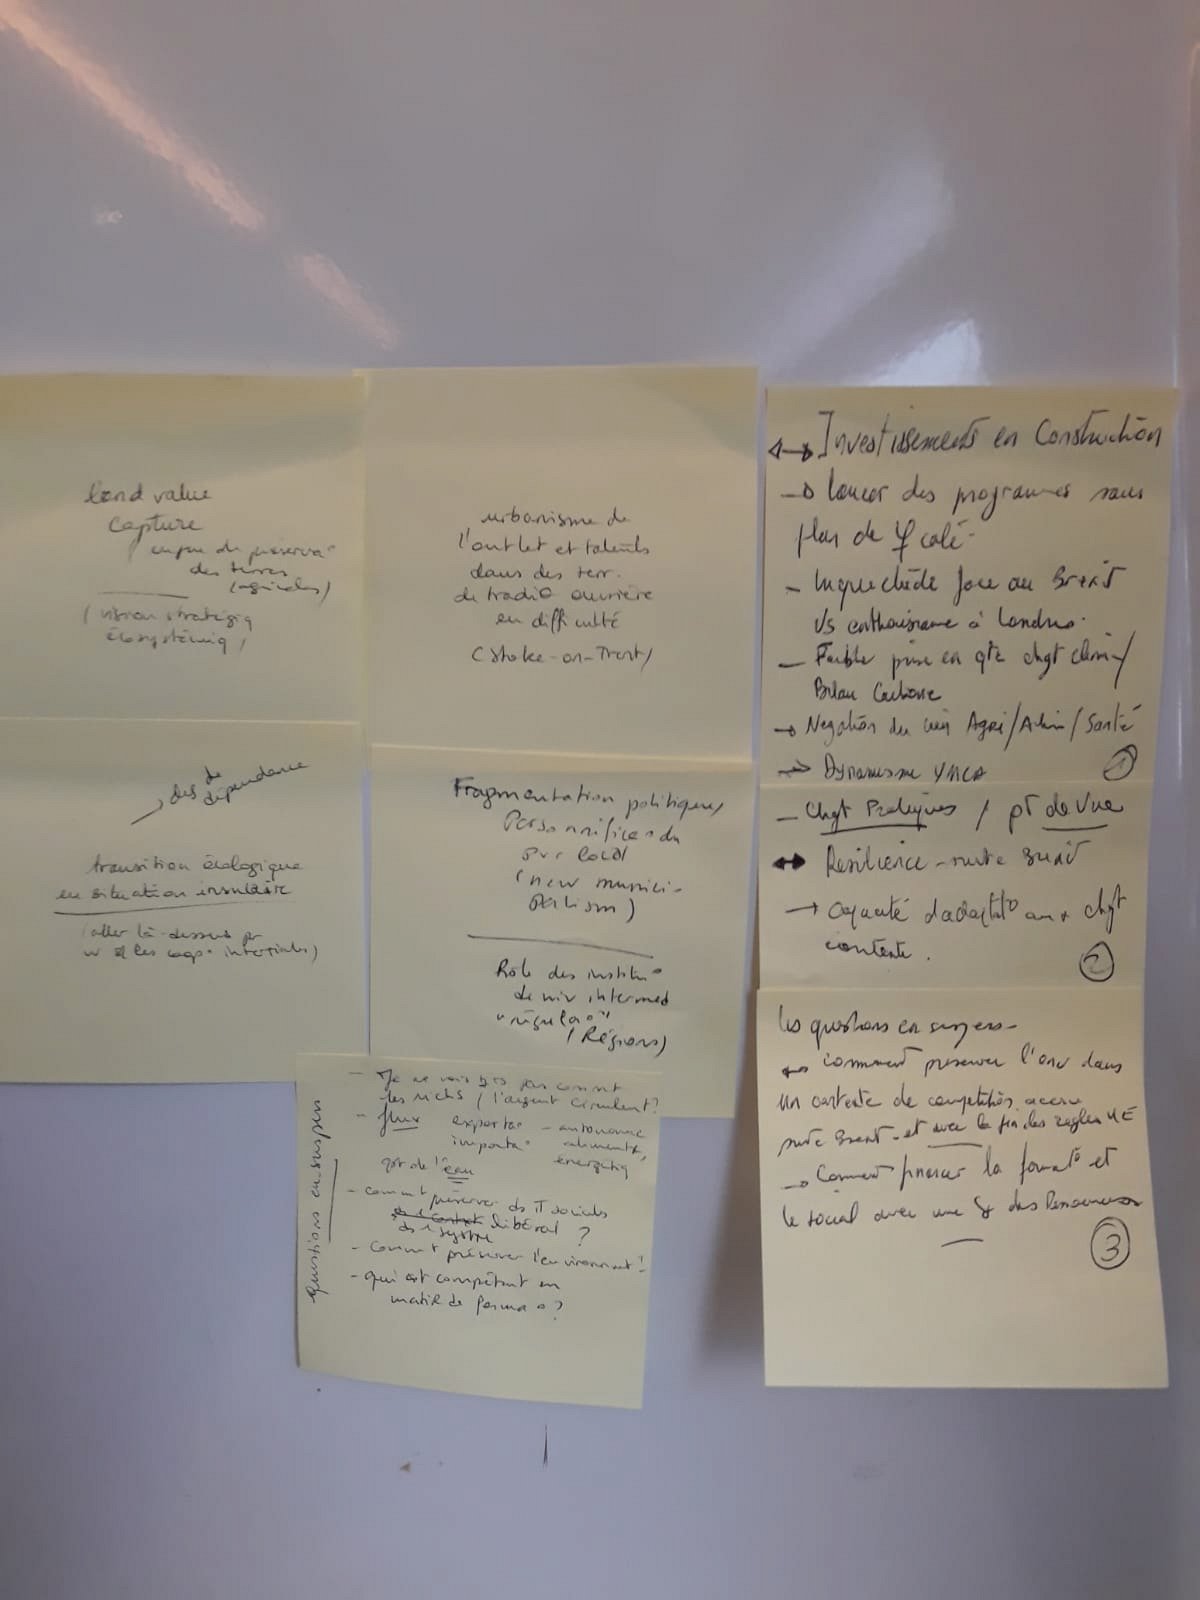 land value
capture
des terres
(agricoles)
(vision stratégiq
écosystémiq)
urbanisme de
l'outlet et talents
dans des terr.
de tradi° ouvrière
en difficulté
(Stoke-on-Trent)
Investissements en Construction
→ lancer des programmes sans
plan de
- Inquiétude face au Brexit
Vs enthousiasme à Londres.
- Faible prise en cpte chgt clim/
Bilan Carbone
→ Négation du lien Agri/Alim/Santé
→ Dynamisme YMCA
1
→ des de
dépendance
transition écologique
en situation insulaire
(aller là-dessus pr
Fragmentation politique/
pvr local
(new munici-
palism)
Rôle des institu°
de niv intermed
"régula°"
(Régions)
- Chgt Pratiques / pt de Vue
↔ Résilience - suite Brexit
→ capacité d'adaptat° aux chgt
contexte.
2
questions en suspens
- Je ne vois pas comment
les richs / l'argent circulent?
- flux exporta° - autonomie
importa° alimentR,
énergétiq
qst de l'eau
- comment préserver des
libéral ?
système
- comment préserver l'environnemt?
- qui est compétent en
matiR de forma°?
les questions en suspens -
→ comment préserver l'env dans
un contexte de compétition accrue
suite Brexit - et avec la fin des règles UE
→ Comment financer la format° et
le social avec une des Ressources
3